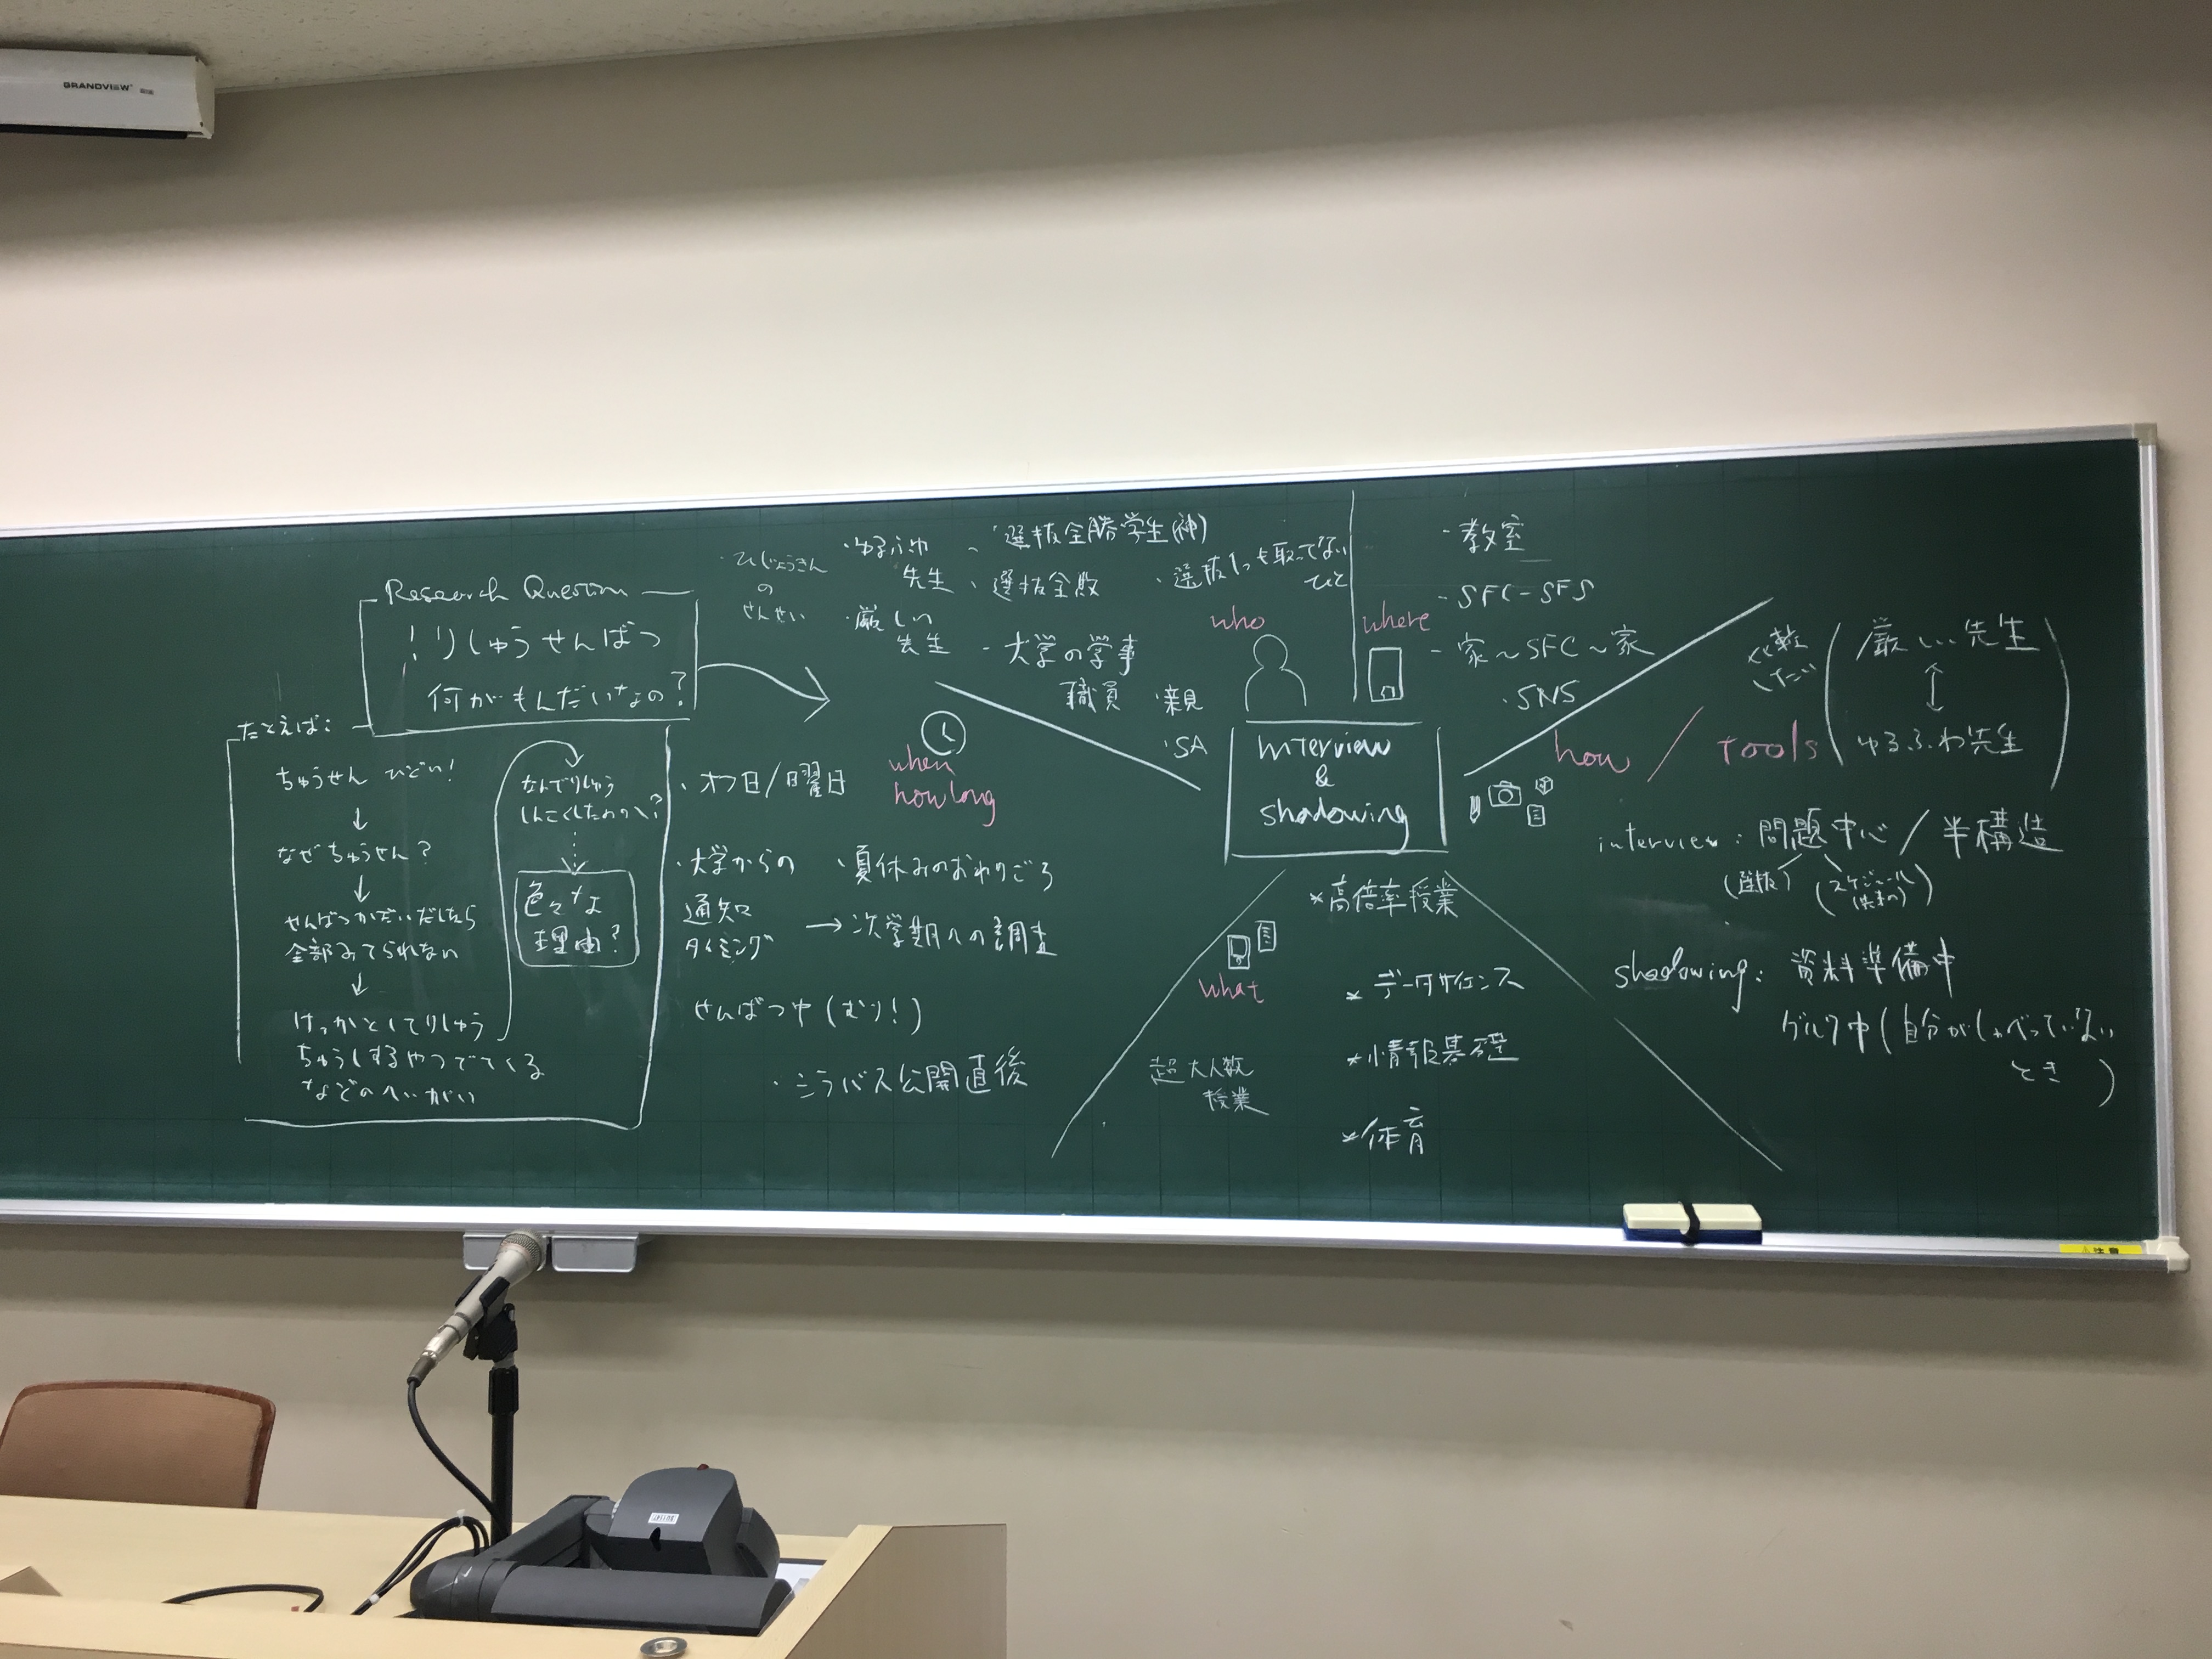 GRANDVIEW
Research Question
！りしゅうせんばつ
何がもんだいなの？
たとえば：
ちゅうせん ひどい！
↓
なぜちゅうせん？
↓
せんばつかだいだしたら
全部みてられない
↓
けっかとしてりしゅう
ちゅうしするやつでてくる
などのへいがい
なんでりしゅう
色々な
理由？
・ひじょうきん
の
せんせい
・ゆるふわ
先生
・厳しい
先生
、選抜全勝学生(神)
、選抜全敗
・選抜1つも取ってない
ひと
- 大学の学事
職員
・親
・SA
who
where
・教室
- SFC-SFS
- 家～SFC～家
・SNS
when
how long
、オフ日/日曜日
・大学からの
通知
タイミング
、夏休みのおわりごろ
→次学期への調査
せんばつ中(むり！)
・シラバス公開直後
Interview
&
shadowing
what
*高倍率授業
* データサイエンス
*情報基礎
*体育
超大人数
授業
how / Tools
比較
したい
厳しい先生
↕
ゆるふわ先生
interview: 問題中心/半構造
(選抜)
shadowing: 資料準備中
グルワ中(自分がしゃべっていない
とき)
注意